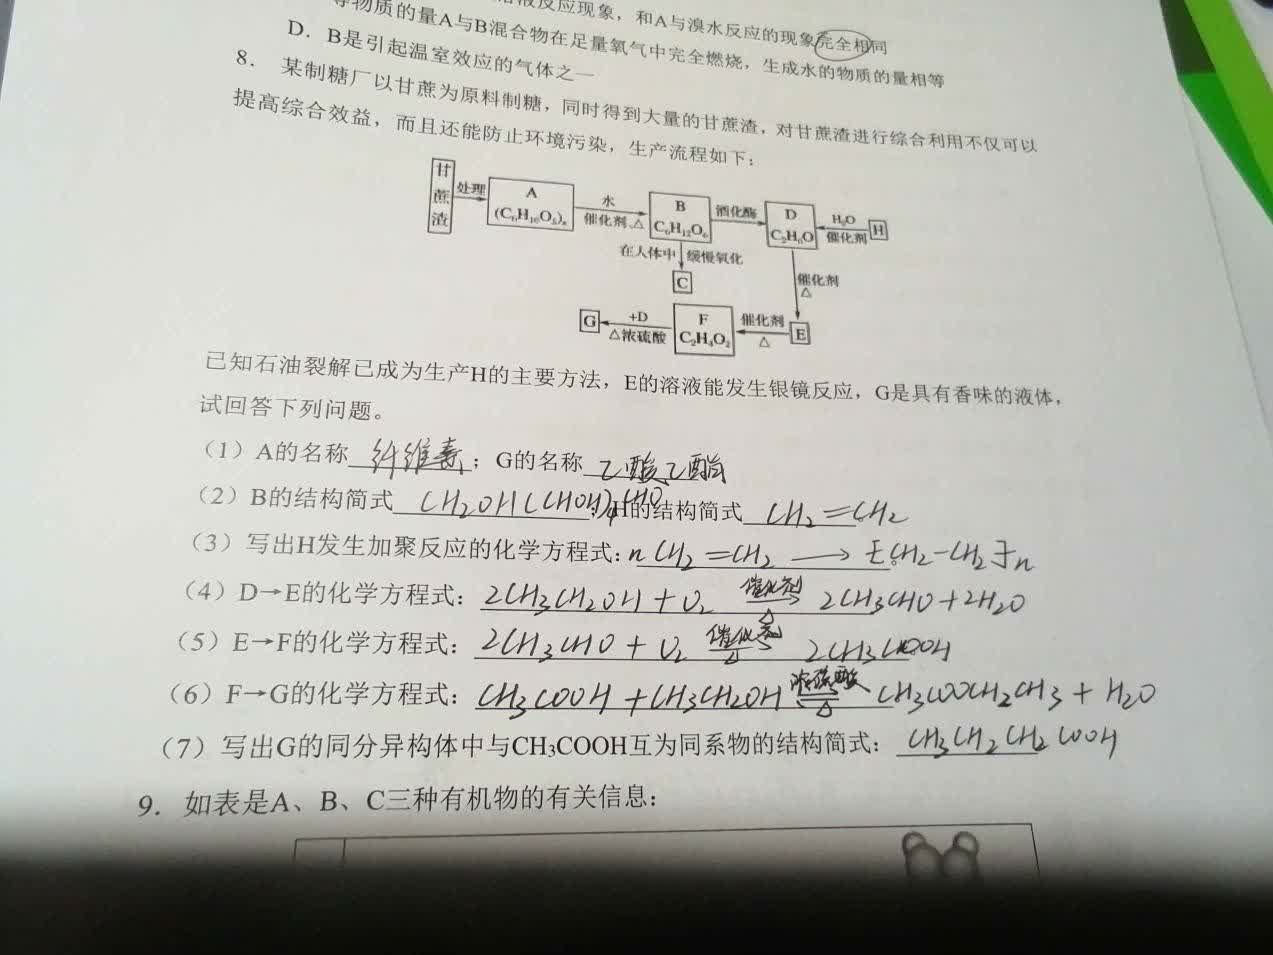 反应现象，和A与溴水反应的现象完全相同
等物质的量A与B混合物在足量氧气中完全燃烧，生成水的物质的量相等
D．B是引起温室效应的气体之一
8．某制糖厂以甘蔗为原料制糖，同时得到大量的甘蔗渣，对甘蔗渣进行综合利用不仅可以
提高综合效益，而且还能防止环境污染，生产流程如下：
甘蔗渣 处理 A (C₆H₁₀O₅)ₙ 水 催化剂、△ B C₆H₁₂O₆ 酒化酶 D C₂H₆O H₂O 催化剂 H
在人体中 缓慢氧化 催化剂 △
C
G +D △浓硫酸 F C₂H₄O₂ 催化剂 △ E
已知石油裂解已成为生产H的主要方法，E的溶液能发生银镜反应，G是具有香味的液体，
试回答下列问题。
（1）A的名称 纤维素 ；G的名称 乙酸乙酯
（2）B的结构简式 CH₂OH(CHOH)₄CHO ；H的结构简式 CH₂=CH₂
（3）写出H发生加聚反应的化学方程式：nCH₂=CH₂ → [CH₂-CH₂]n
（4）D→E的化学方程式：2CH₃CH₂OH + O₂ 催化剂 △ 2CH₃CHO+2H₂O
（5）E→F的化学方程式：2CH₃CHO + O₂ 催化剂 △ 2CH₃COOH
（6）F→G的化学方程式：CH₃COOH + CH₃CH₂OH 浓硫酸 △ CH₃COOCH₂CH₃ + H₂O
（7）写出G的同分异构体中与CH₃COOH互为同系物的结构简式：CH₃CH₂CH₂COOH
9．如表是A、B、C三种有机物的有关信息：